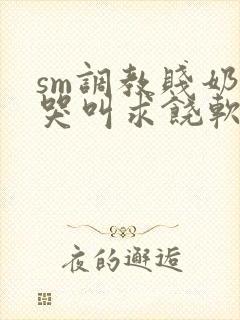 sm調教賤奶
哭叫求饒軟
夜的邂逅